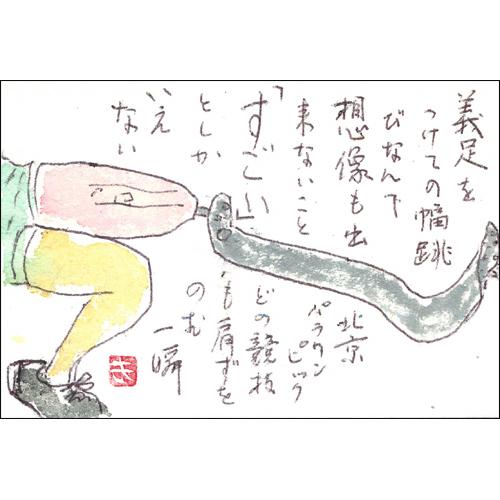 義足を
つけての幅跳
びなんて
想像も出
来ないこと
「すごい」
としか
いえ
ない
北京
パラリン
ピック
どの競技
も肩ずを
のむ
一瞬